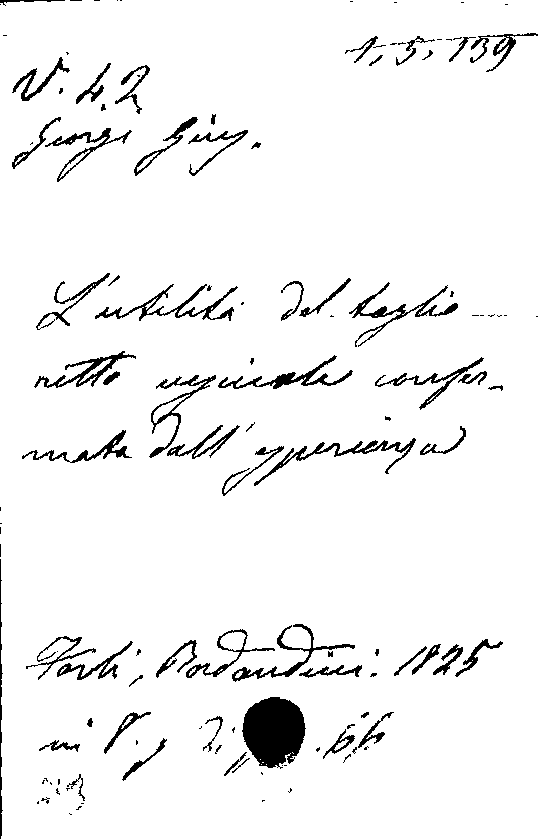 1, 5, 139
V. 42
Giorgi Gius.
L'utilità del taglio
retto vescicale confer-
mata dall'esperienza
Forlì, Bordandini. 1825
in 8. p. 66